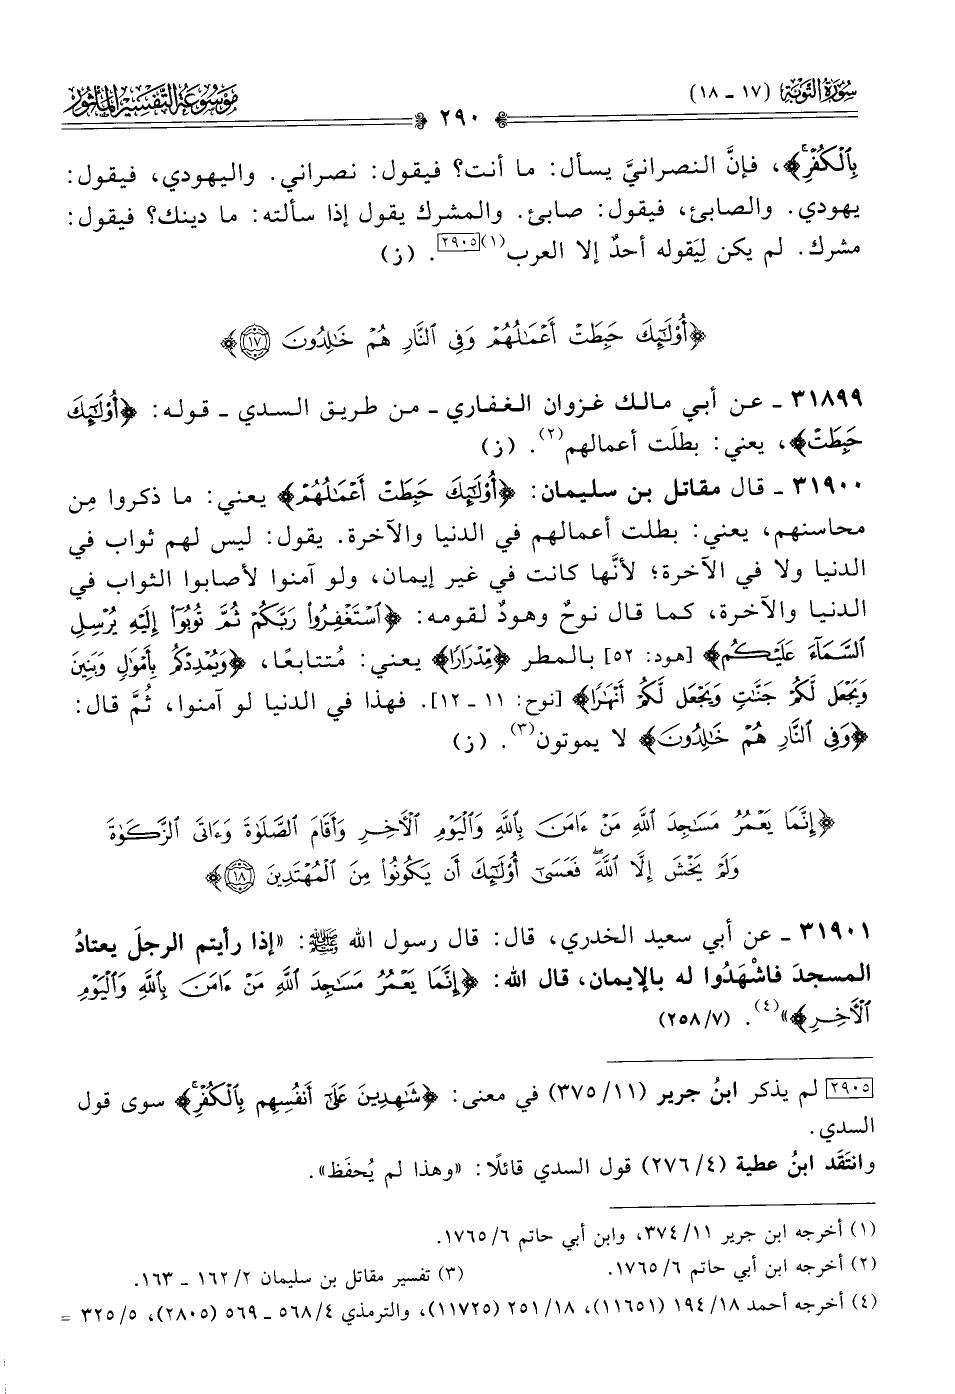 سُورَةُ التَّوْبَةِ (١٧ - ١٨)
٢٩٠
مَوْسُوعَةُ التَّفْسِيرِ المَأْثُورِ
بِالْكُفْرِ﴾، فإنَّ النصرانيَّ يسأل: ما أنت؟ فيقول: نصراني. واليهودي، فيقول:
يهودي. والصابئ، فيقول: صابئ. والمشرك يقول إذا سألته: ما دينك؟ فيقول:
مشرك. لم يكن لِيَقوله أحدٌ إلا العرب(١)[٢٩٠٥]. (ز)
﴿أُوْلَٰٓئِكَ حَبِطَتْ أَعْمَٰلُهُمْ وَفِى ٱلنَّارِ هُمْ خَٰلِدُونَ ١٧﴾
٣١٨٩٩ - عن أبي مالك غزوان الغفاري - من طريق السدي - قوله: ﴿أُوْلَٰٓئِكَ
حَبِطَتْ﴾، يعني: بطلَت أعمالهم(٢). (ز)
٣١٩٠٠ - قال مقاتل بن سليمان: ﴿أُوْلَٰٓئِكَ حَبِطَتْ أَعْمَٰلُهُمْ﴾ يعني: ما ذكروا مِن
محاسنهم، يعني: بطلت أعمالهم في الدنيا والآخرة. يقول: ليس لهم ثواب في
الدنيا ولا في الآخرة؛ لأنَّها كانت في غير إيمان، ولو آمنوا لأصابوا الثواب في
الدنيا والآخرة، كما قال نوحٌ وهودٌ لقومه: ﴿ٱسْتَغْفِرُوا۟ رَبَّكُمْ ثُمَّ تُوبُوٓا۟ إِلَيْهِ يُرْسِلِ
ٱلسَّمَآءَ عَلَيْكُم﴾ [هود: ٥٢] بالمطر ﴿مِّدْرَارًا﴾ يعني: مُتتابعًا، ﴿وَيُمْدِدْكُم بِأَمْوَٰلٍ وَبَنِينَ
وَيَجْعَل لَّكُمْ جَنَّٰتٍ وَيَجْعَل لَّكُمْ أَنْهَٰرًا﴾ [نوح: ١١ - ١٢]. فهذا في الدنيا لو آمنوا، ثُمَّ قال:
﴿وَفِى ٱلنَّارِ هُمْ خَٰلِدُونَ﴾ لا يموتون(٣). (ز)
﴿إِنَّمَا يَعْمُرُ مَسَٰجِدَ ٱللَّهِ مَنْ ءَامَنَ بِٱللَّهِ وَٱلْيَوْمِ ٱلْءَاخِرِ وَأَقَامَ ٱلصَّلَوٰةَ وَءَاتَى ٱلزَّكَوٰةَ
وَلَمْ يَخْشَ إِلَّا ٱللَّهَ فَعَسَىٰٓ أُوْلَٰٓئِكَ أَن يَكُونُوا۟ مِنَ ٱلْمُهْتَدِينَ ١٨﴾
٣١٩٠١ - عن أبي سعيد الخدري، قال: قال رسول الله ﷺ: «إذا رأيتم الرجلَ يعتادُ
المسجدَ فاشْهَدُوا له بالإيمان، قال الله: ﴿إِنَّمَا يَعْمُرُ مَسَٰجِدَ ٱللَّهِ مَنْ ءَامَنَ بِٱللَّهِ وَٱلْيَوْمِ
ٱلْءَاخِرِ﴾»(٤). (٢٥٨/٧)
[٢٩٠٥] لم يذكر ابنُ جرير (٣٧٥/١١) في معنى: ﴿شَٰهِدِينَ عَلَىٰٓ أَنفُسِهِم بِٱلْكُفْرِ﴾ سوى قول
السدي.
وانتَقَد ابنُ عطية (٢٧٦/٤) قول السدي قائلًا: «وهذا لم يُحفَظ».
(١) أخرجه ابن جرير ٣٧٤/١١، وابن أبي حاتم ١٧٦٥/٦.
(٢) أخرجه ابن أبي حاتم ١٧٦٥/٦.
(٣) تفسير مقاتل بن سليمان ١٦٢/٢ - ١٦٣.
(٤) أخرجه أحمد ١٩٤/١٨ (١١٦٥١)، ٢٥١/١٨ (١١٧٢٥)، والترمذي ٥٦٨/٤ - ٥٦٩ (٢٨٠٥)، ٣٢٥/٥ =